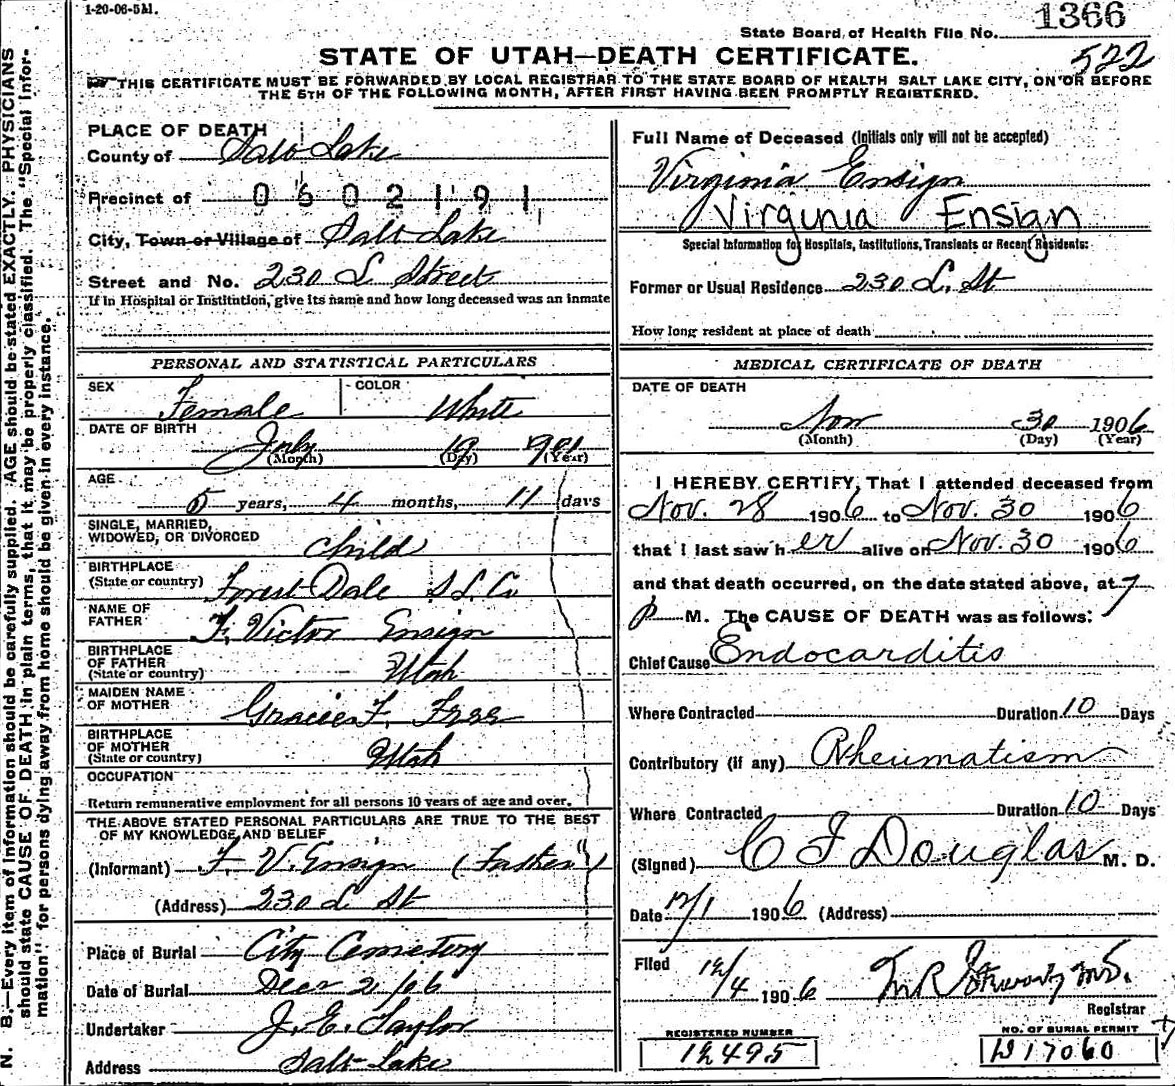 1-20-06-5M.
1366
State Board of Health File No.
STATE OF UTAH—DEATH CERTIFICATE.
522
THIS CERTIFICATE MUST BE FORWARDED BY LOCAL REGISTRAR TO THE STATE BOARD OF HEALTH SALT LAKE CITY, ON OR BEFORE
THE 5TH OF THE FOLLOWING MONTH, AFTER FIRST HAVING BEEN PROMPTLY REGISTERED.
N. B.—Every item of information should be carefully supplied. AGE should be stated EXACTLY. PHYSICIANS
should state CAUSE OF DEATH in plain terms, that it may be properly classified. The "Special Infor-
mation" for persons dying away from home should be given in every instance.
PLACE OF DEATH
County of Salt Lake
Precinct of 0602191
City, Town or Village of Salt Lake
Street and No. 230 L Street
If in Hospital or Institution, give its name and how long deceased was an inmate
PERSONAL AND STATISTICAL PARTICULARS
SEX Female COLOR White
DATE OF BIRTH July 19 901
(Month) (Day) (Year)
AGE
5 years, 4 months, 11 days
SINGLE, MARRIED,
WIDOWED, OR DIVORCED Child
BIRTHPLACE
(State or country) Forest Dale S L Co
NAME OF
FATHER F. Victor Ensign
BIRTHPLACE
OF FATHER
(State or country) Utah
MAIDEN NAME
OF MOTHER Gracie F. Free
BIRTHPLACE
OF MOTHER
(State or country) Utah
OCCUPATION
Return remunerative employment for all persons 10 years of age and over.
THE ABOVE STATED PERSONAL PARTICULARS ARE TRUE TO THE BEST
OF MY KNOWLEDGE AND BELIEF
(Informant) F. V. Ensign (Father)
(Address) 230 L St
Place of Burial City Cemetery
Date of Burial Dec 2/06
Undertaker J. E. Taylor
Address Salt Lake
Full Name of Deceased (Initials only will not be accepted)
Virginia Ensign
Virginia Ensign
Special Information for Hospitals, Institutions, Transients or Recent Residents:
Former or Usual Residence 230 L. St
How long resident at place of death
MEDICAL CERTIFICATE OF DEATH
DATE OF DEATH
Nov 30 1906
(Month) (Day) (Year)
I HEREBY CERTIFY, That I attended deceased from
Nov. 28 1906 to Nov. 30 1906
that I last saw her alive on Nov. 30 1906
and that death occurred, on the date stated above, at 7
P M. The CAUSE OF DEATH was as follows:
Chief Cause Endocarditis
Where Contracted Duration 10 Days
Contributory (if any) Rheumatism
Where Contracted Duration 10 Days
(Signed) C F Douglas M. D.
Date 12/1 1906 (Address)
Filed 12/4 1906 M.D.
Registrar
REGISTERED NUMBER
12495
NO. OF BURIAL PERMIT
B17060